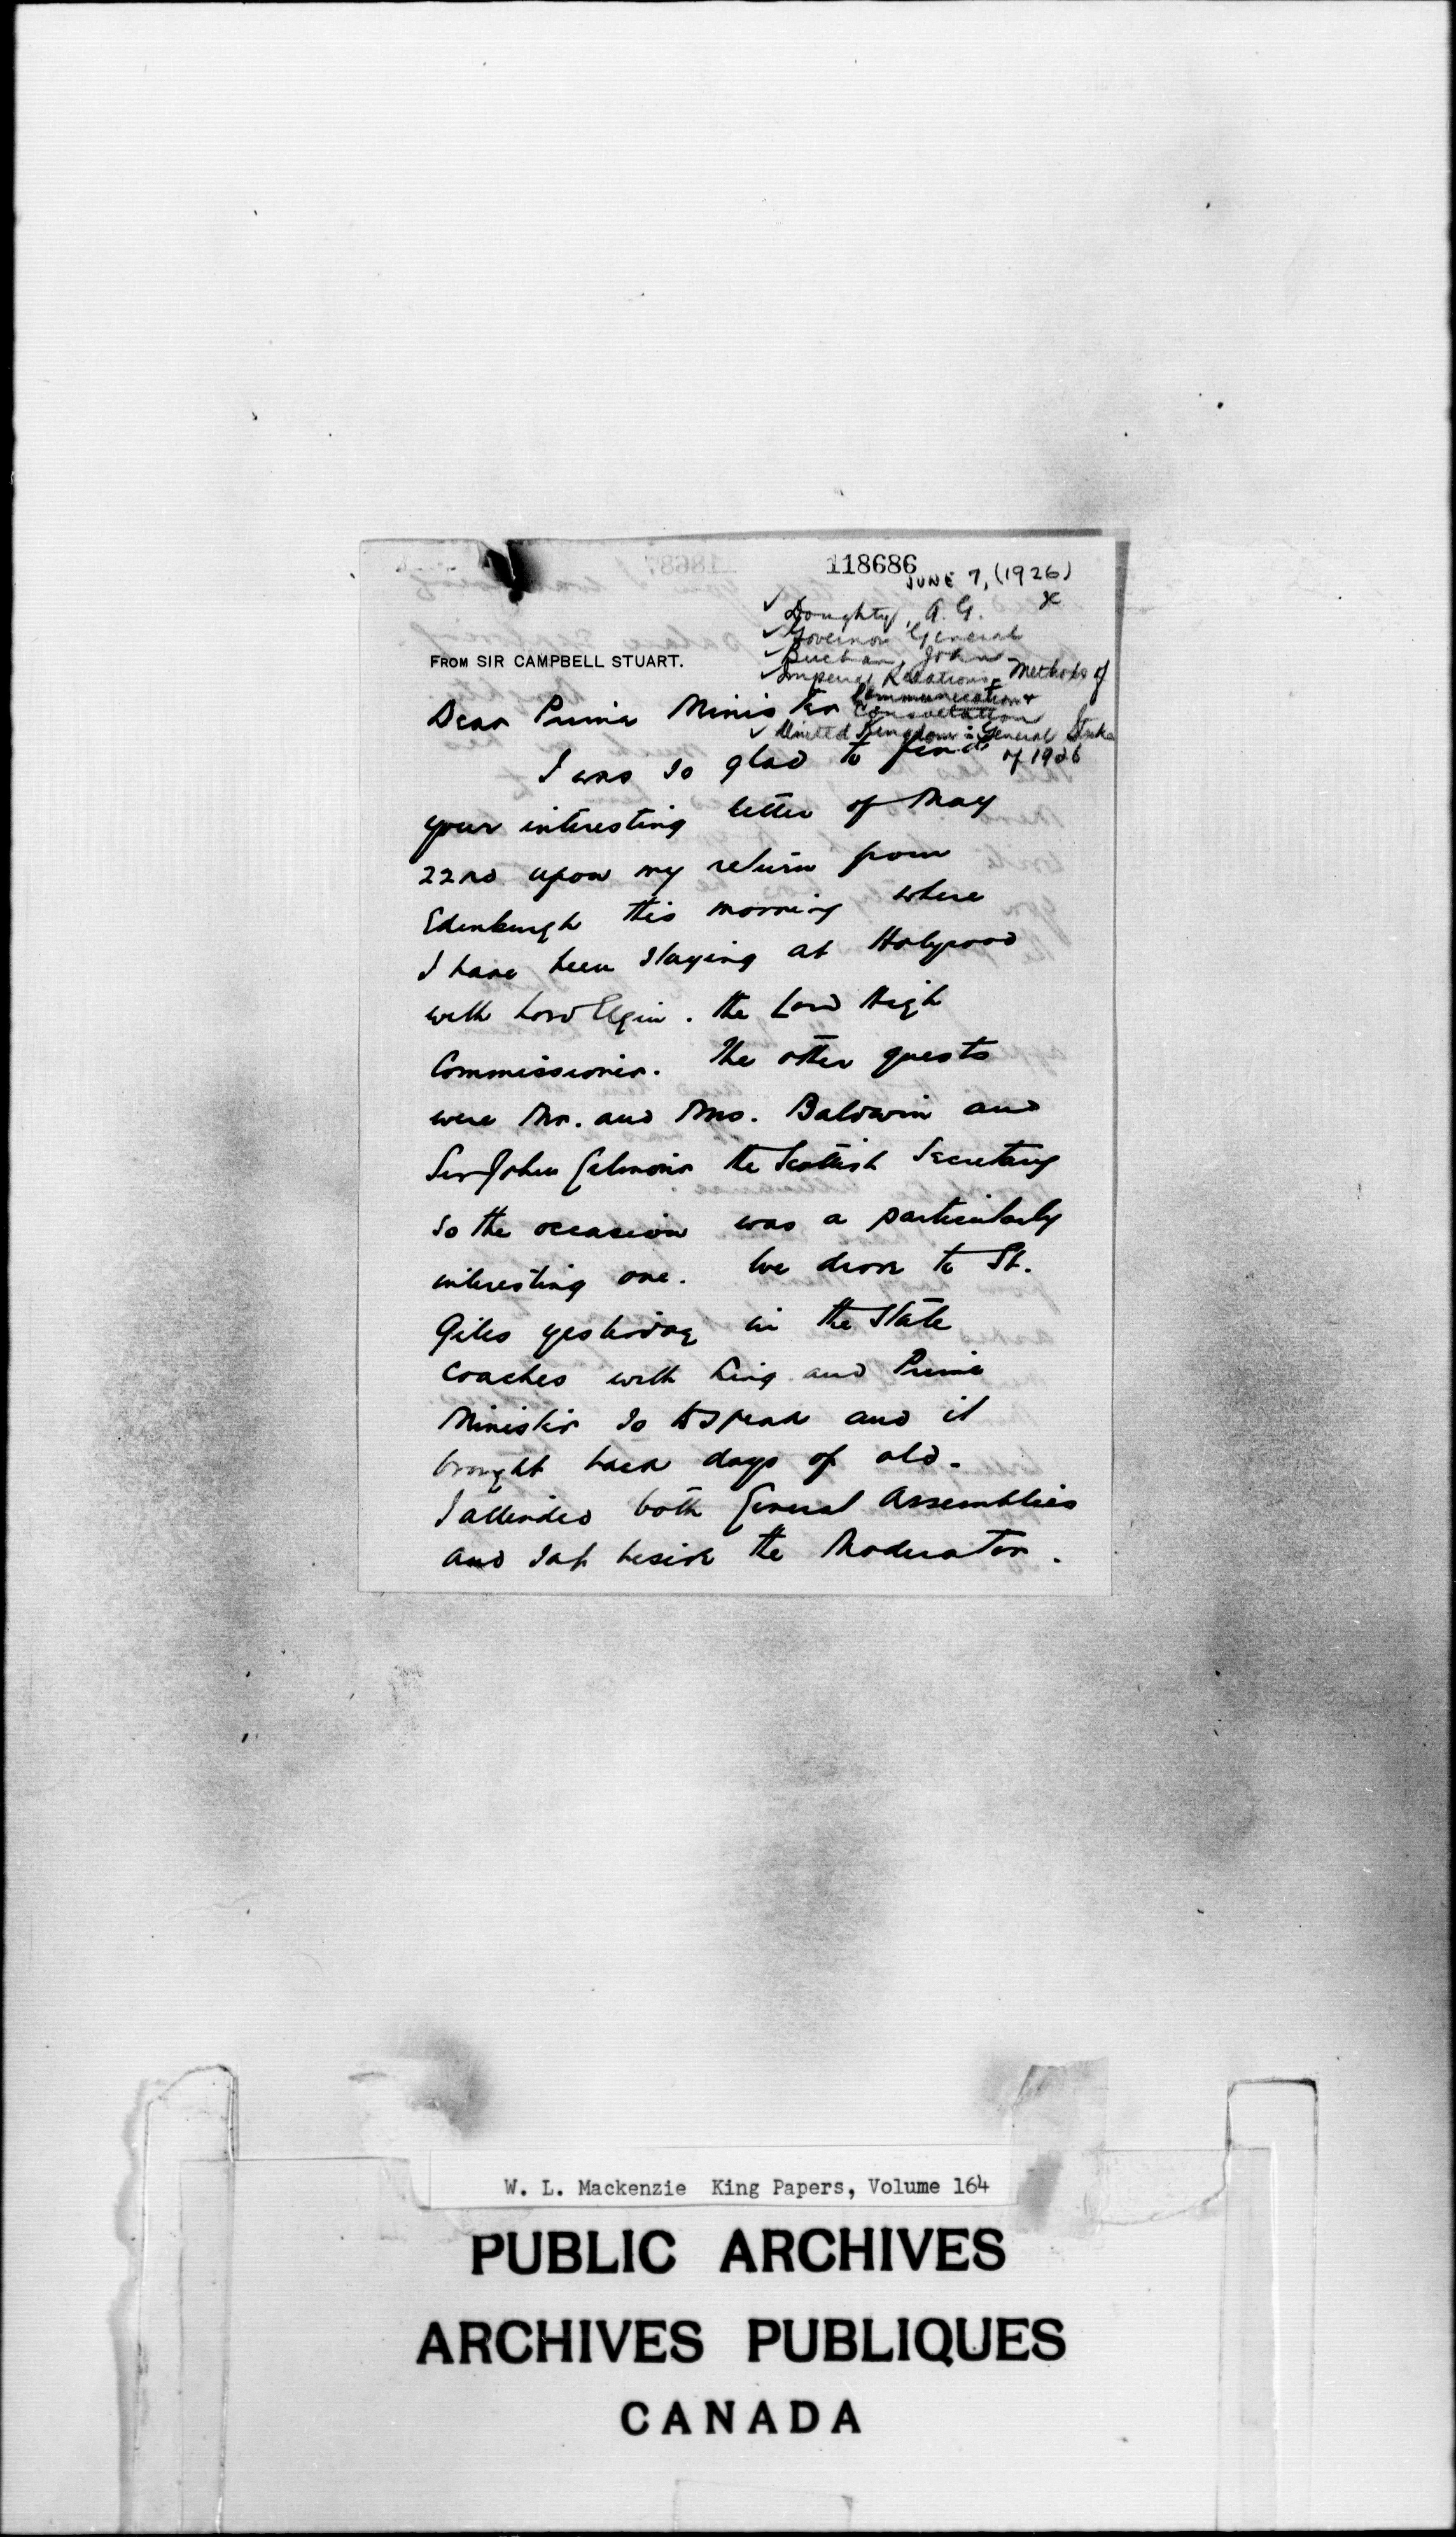 118686
JUNE 7, (1926)
x
✓ Doughty, A. G.
✓ Governor General
✓ Buchan, John
✓ Imperial Relations - Methods of
Communication &
Consultation
✓ United Kingdom : General Strike
of 1926
FROM SIR CAMPBELL STUART.
Dear Prime Minister
I was so glad to find
your interesting letter of May
22nd upon my return from
Edinburgh this morning where
I have been staying at Holyrood
with Lord Elgin. the Lord High
Commissioner. The other guests
were Mr. and Mrs. Baldwin and
Sir John Gilmour the Scottish Secretary
so the occasion was a particularly
interesting one. We drove to St.
Giles yesterday in the State
Coaches with King and Prime
Minister so to speak and it
brought back days of old.
I attended both General Assemblies
and sat beside the Moderator.
W. L. Mackenzie King Papers, Volume 164
PUBLIC ARCHIVES
ARCHIVES PUBLIQUES
CANADA